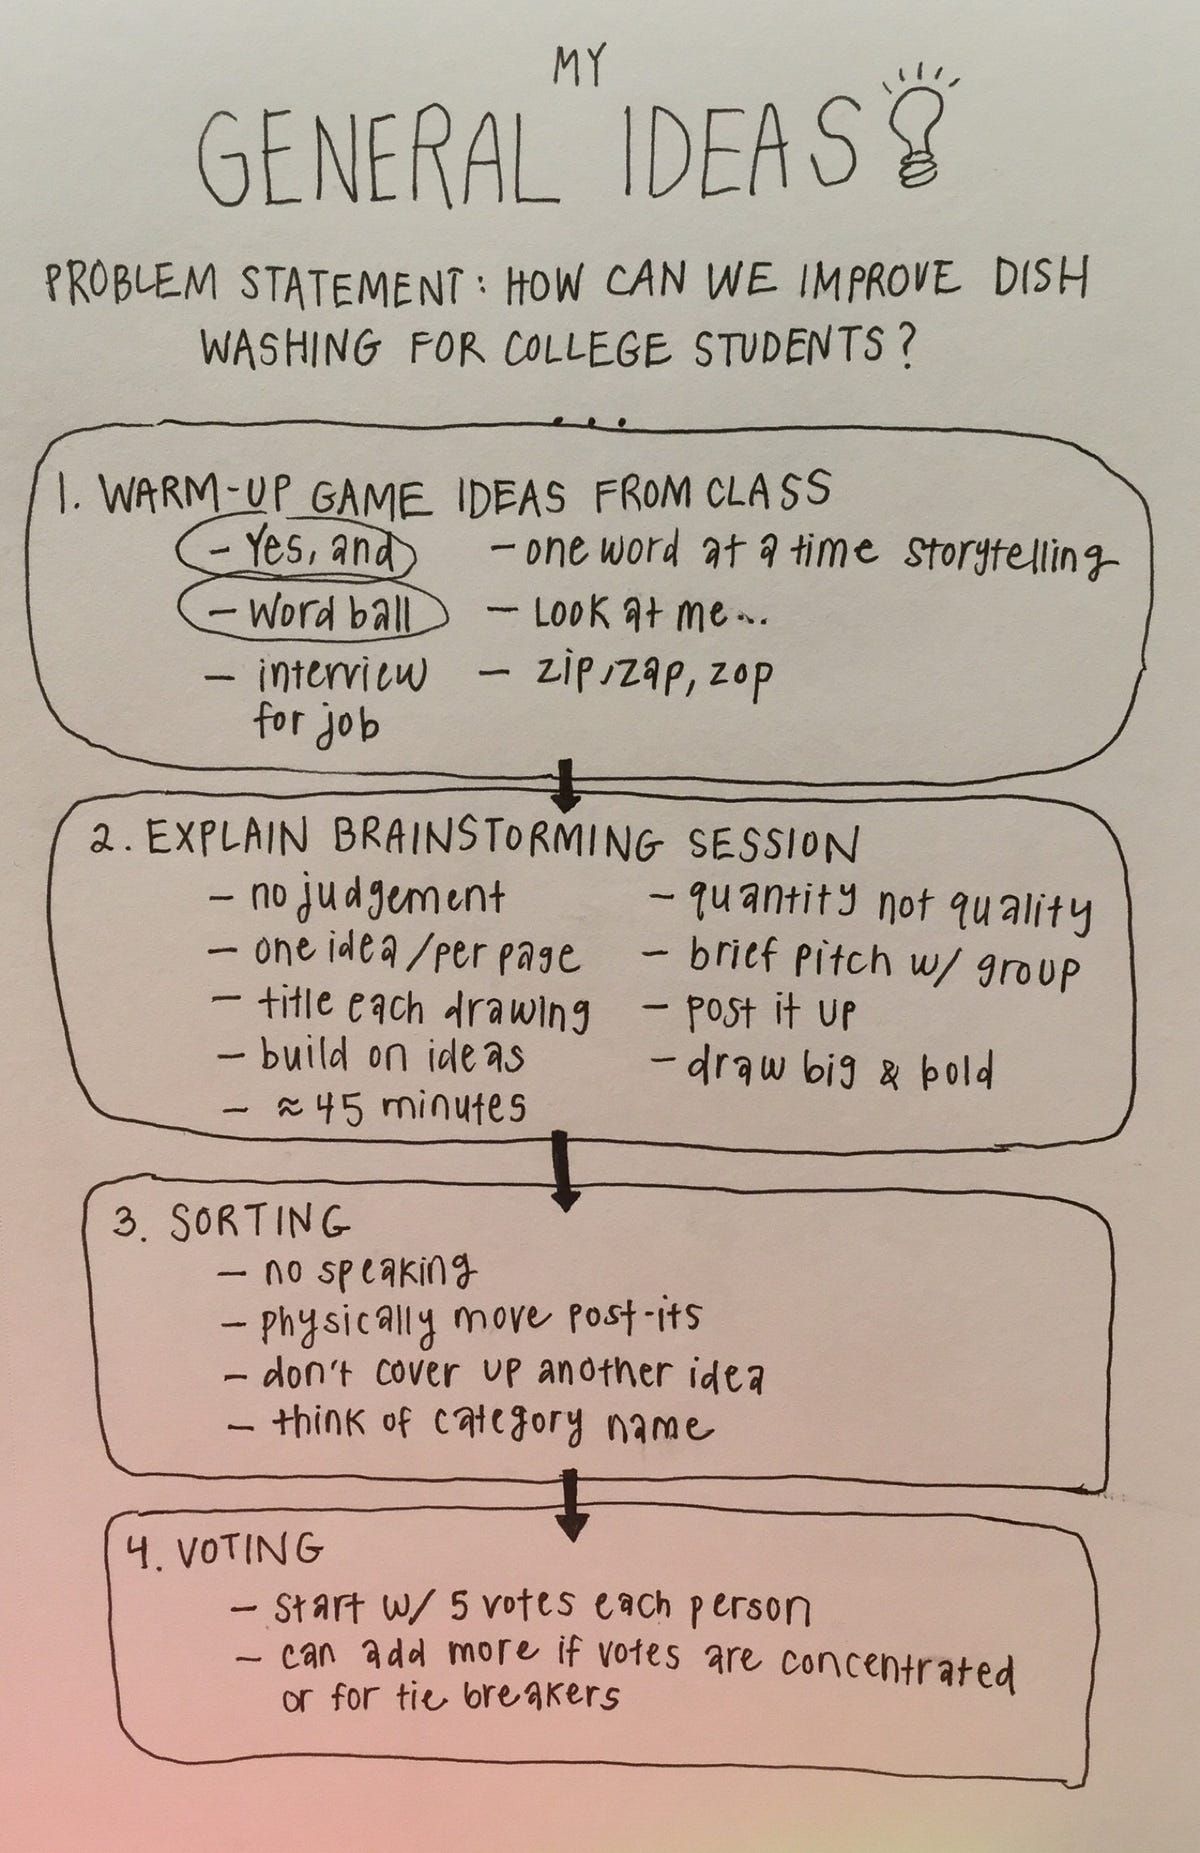 MY
GENERAL IDEAS
PROBLEM STATEMENT: HOW CAN WE IMPROVE DISH
WASHING FOR COLLEGE STUDENTS?
...
1. WARM-UP GAME IDEAS FROM CLASS
- Yes, and
- Word ball
- interview
for job
- one word at a time storytelling
- Look at me...
- zip, zap, zop
2. EXPLAIN BRAINSTORMING SESSION
- no judgement
- one idea/per page
- title each drawing
- build on ideas
- ≈ 45 minutes
- quantity not quality
- brief pitch w/ group
- post it up
- draw big & bold
3. SORTING
- no speaking
- physically move post-its
- don't cover up another idea
- think of category name
4. VOTING
- start w/ 5 votes each person
- can add more if votes are concentrated
or for tie breakers